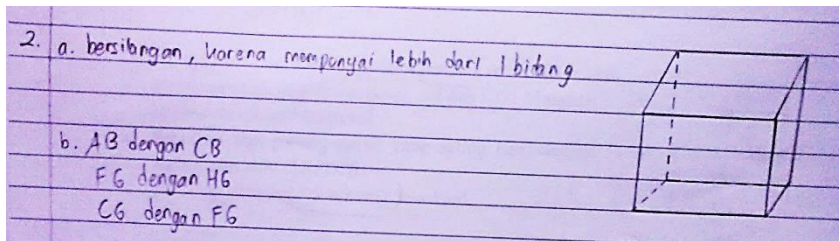 2. a. bersilangan, karena mempunyai lebih dari 1 bidang
b. AB dengan CB
FG dengan HG
CG dengan FG